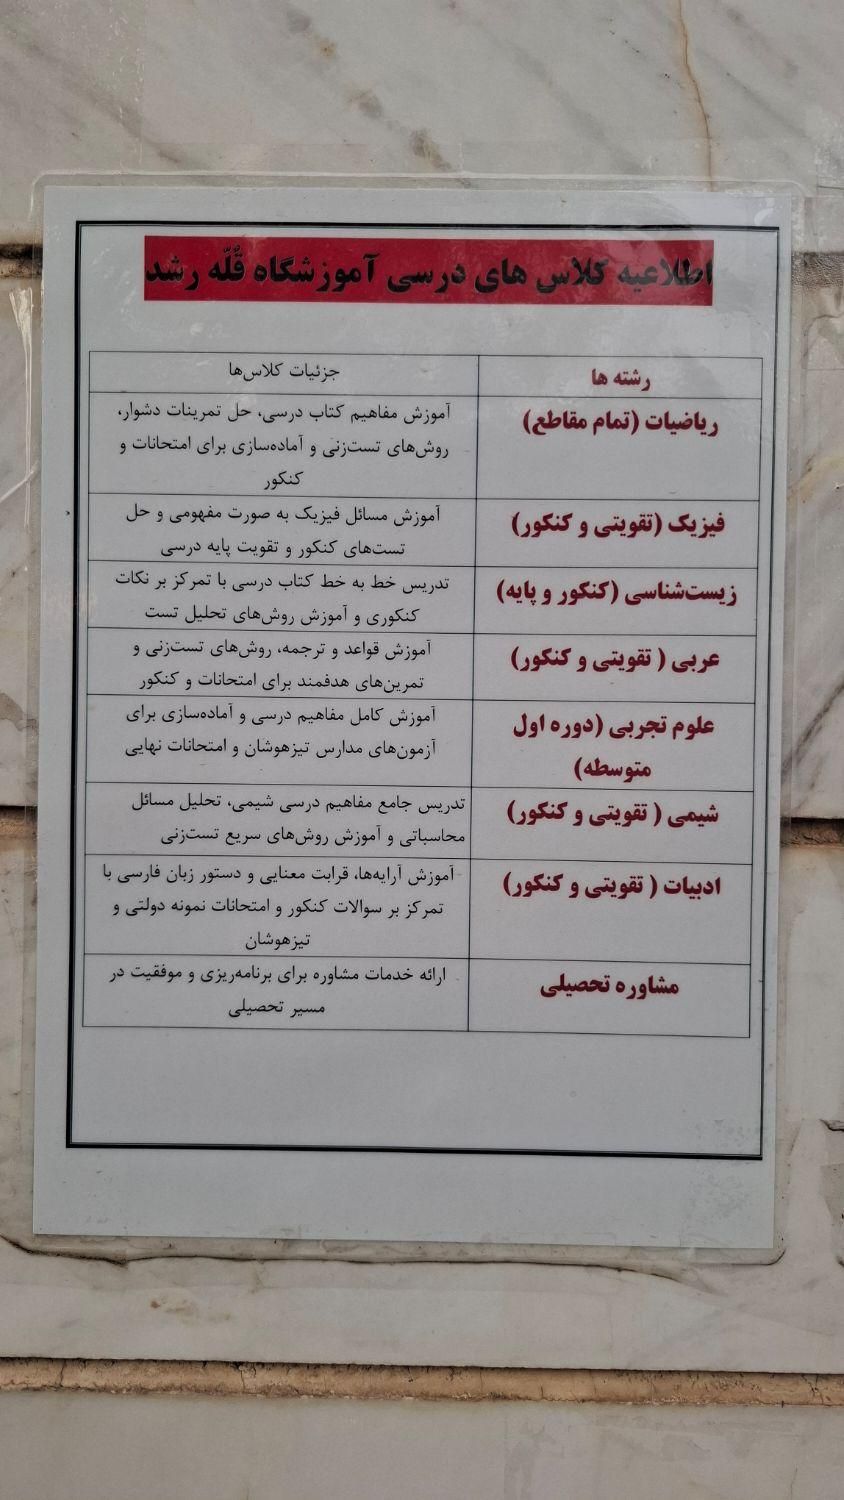 اطلاعیه کلاس های درسی آموزشگاه قُلّه رشد
رشته ها
جزئیات کلاس‌ها
ریاضیات (تمام مقاطع)
آموزش مفاهیم کتاب درسی، حل تمرینات دشوار،
روش‌های تست‌زنی و آماده‌سازی برای امتحانات و
کنکور
فیزیک (تقویتی و کنکور)
آموزش مسائل فیزیک به صورت مفهومی و حل
تست‌های کنکور و تقویت پایه درسی
زیست‌شناسی (کنکور و پایه)
تدریس خط به خط کتاب درسی با تمرکز بر نکات
کنکوری و آموزش روش‌های تحلیل تست
عربی ( تقویتی و کنکور)
آموزش قواعد و ترجمه، روش‌های تست‌زنی و
تمرین‌های هدفمند برای امتحانات و کنکور
علوم تجربی (دوره اول
متوسطه)
آموزش کامل مفاهیم درسی و آماده‌سازی برای
آزمون‌های مدارس تیزهوشان و امتحانات نهایی
شیمی ( تقویتی و کنکور)
تدریس جامع مفاهیم درسی شیمی، تحلیل مسائل
محاسباتی و آموزش روش‌های سریع تست‌زنی
ادبیات ( تقویتی و کنکور)
آموزش آرایه‌ها، قرابت معنایی و دستور زبان فارسی با
تمرکز بر سوالات کنکور و امتحانات نمونه دولتی و
تیزهوشان
مشاوره تحصیلی
ارائه خدمات مشاوره برای برنامه‌ریزی و موفقیت در
مسیر تحصیلی